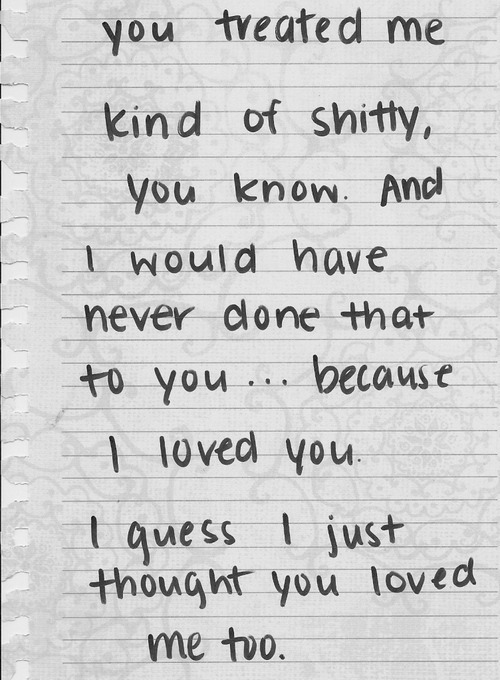 you treated me
kind of shitty,
you know. And
I would have
never done that
to you... because
I loved you.
I guess I just
thought you loved
me too.